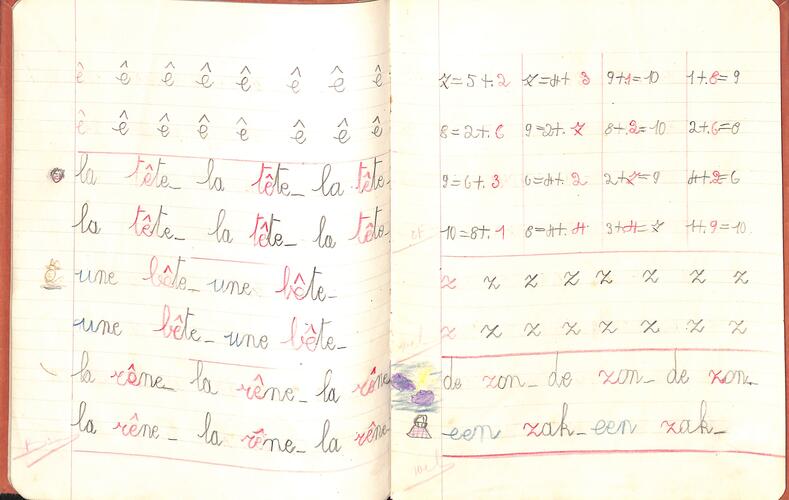 ê ê ê ê ê ê ê ê
ê ê ê ê ê ê ê ê
la tête_ la tête_ la tête
la tête_ la tête_ la tête
une bête_ une bête_
une bête_ une bête_
la rêne_ la rêne_ la rêne
la rêne_ la rêne_ la rêne_
7=5+.2 7=4+.3 9+.1=10 1+.8=9
8=2+.6 9=2+.7 8+.2=10 2+.6=8
9=6+.3 6=4+.2 2+.7=9 4+.2=6
10=8+.1 8=4+.4 3+.4=7 1+.9=10
z z z z z z z z
z z z z z z z z
de zon_ de zon_ de zon_
een zak_ een zak_